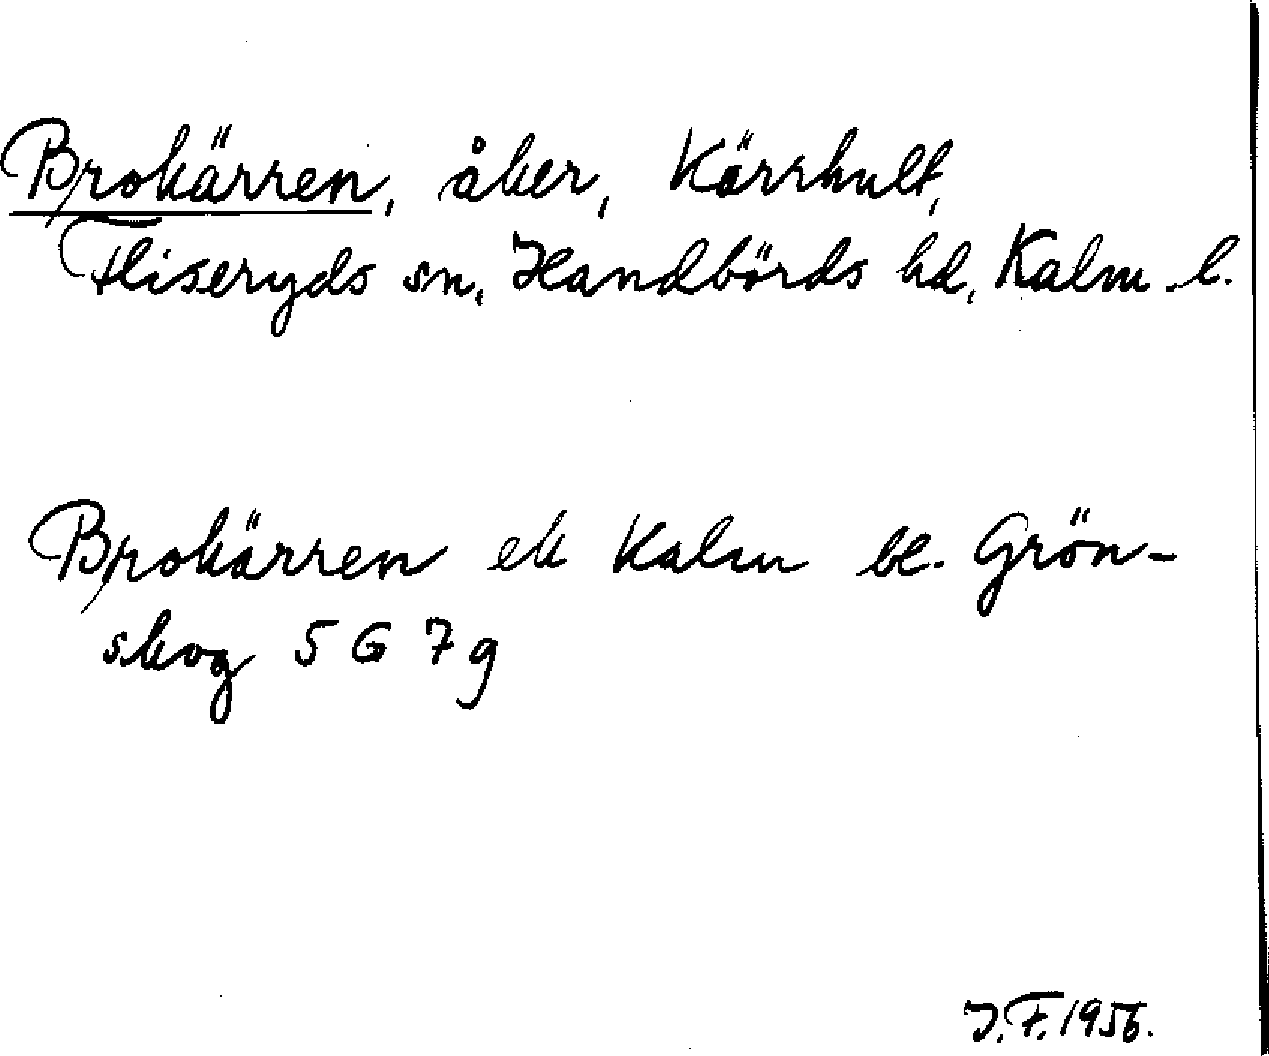 Brokärren, åker, Kärrhult,
Fliseryds sn, Handbörds hd, Kalm. l.
Brokärren ek Kalm bl. Grön-
skog 5 G 7 g
J. F. 1956.